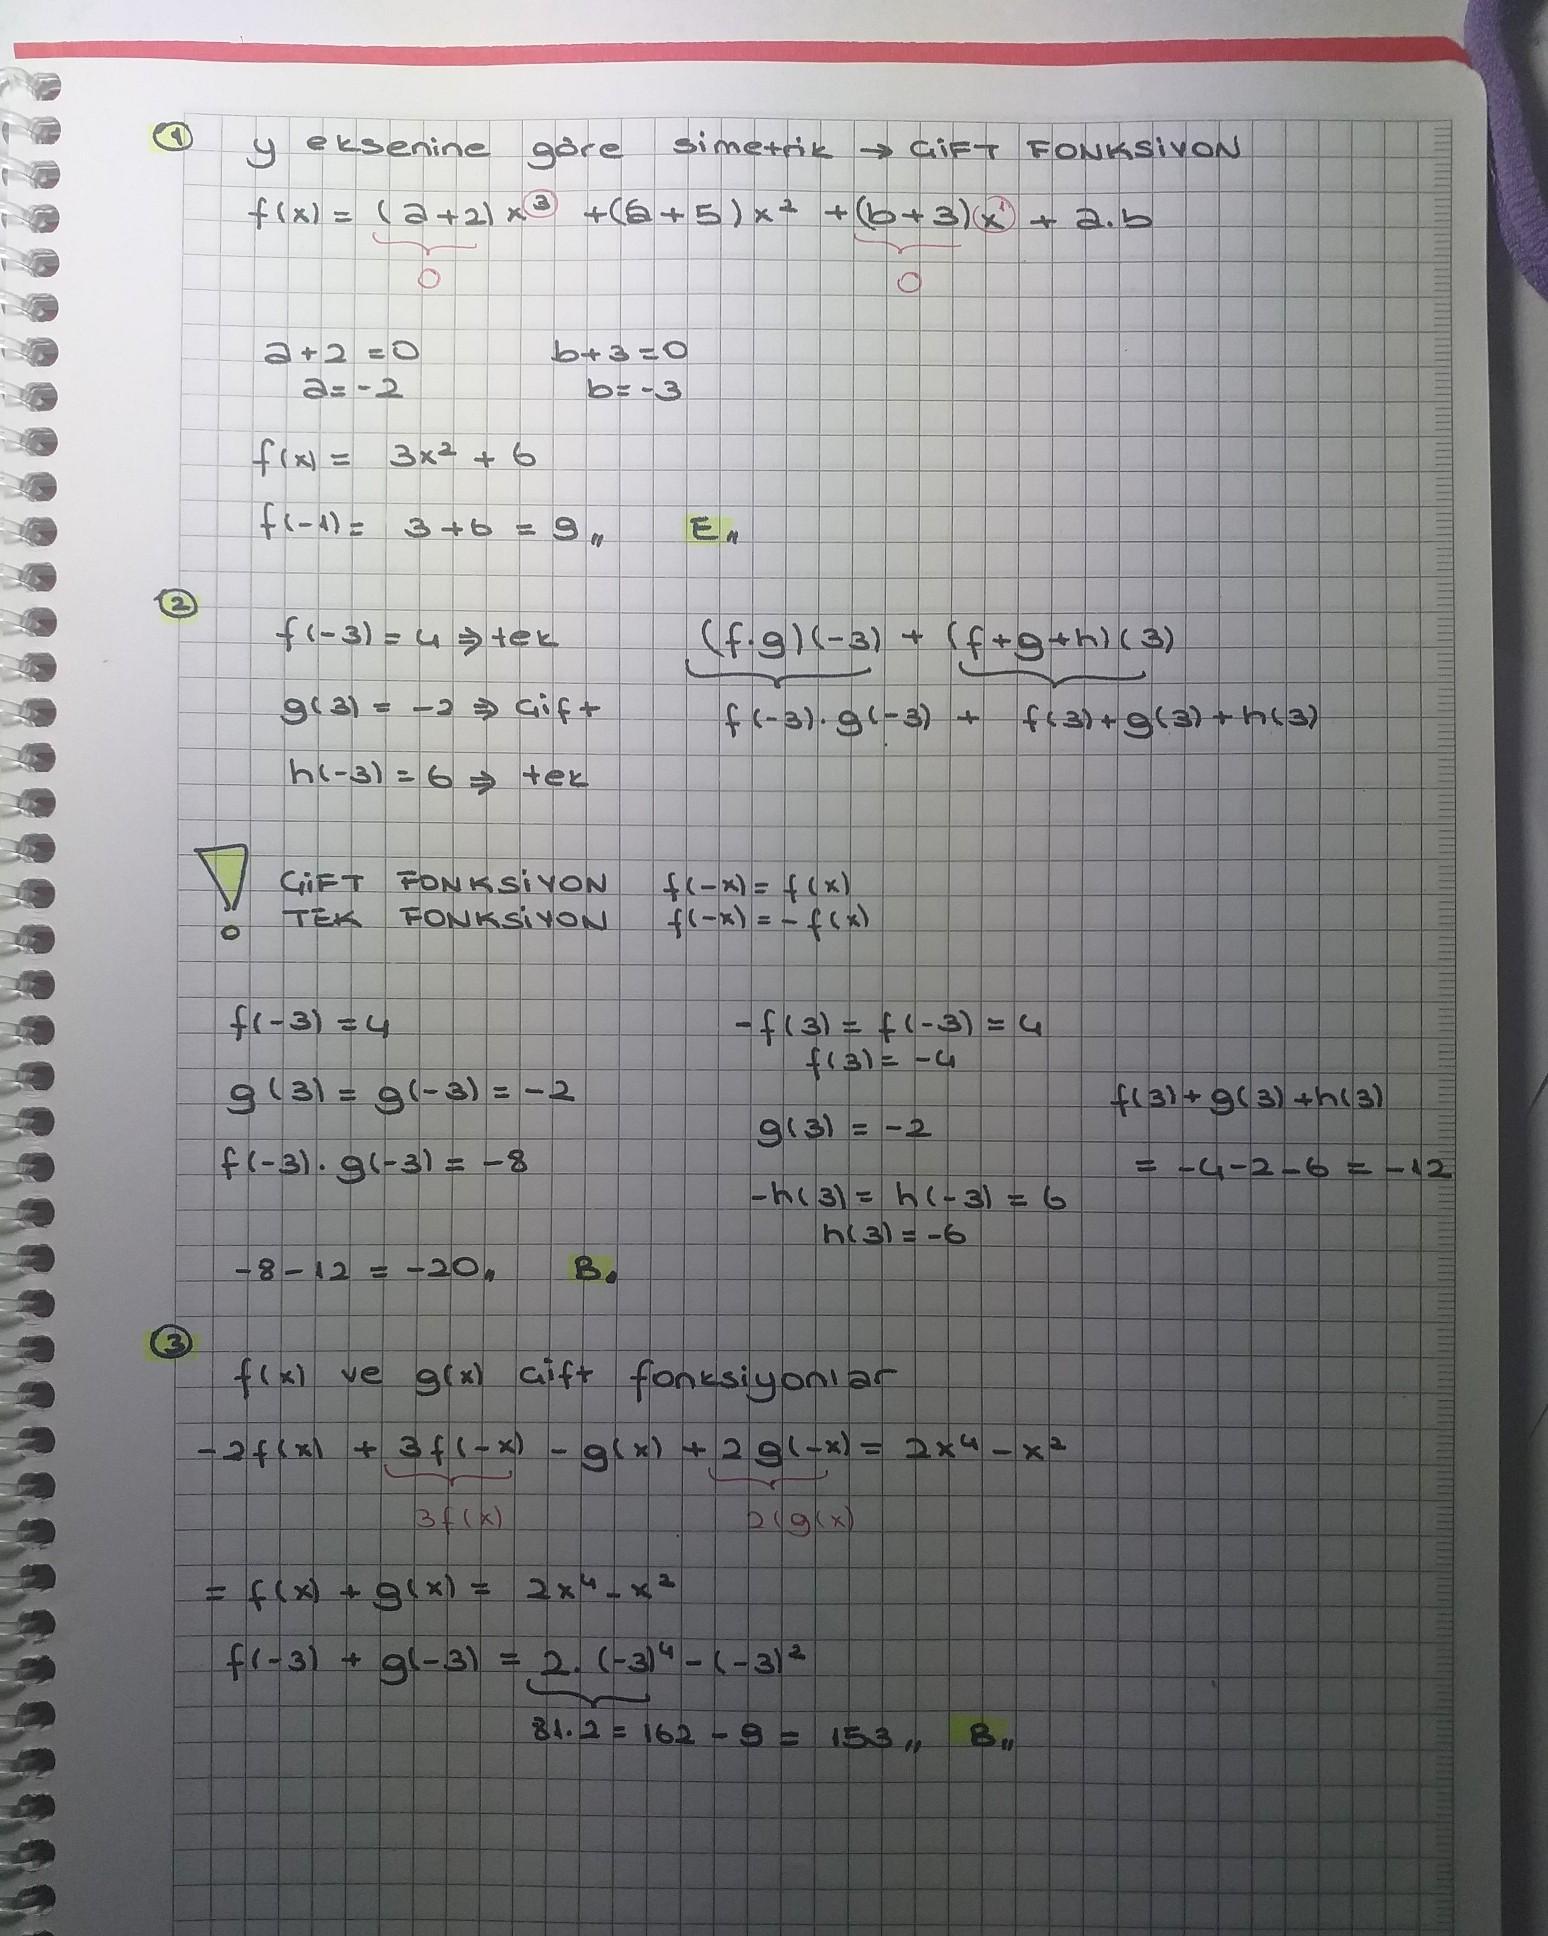 1 y eksenine göre simetrik → ÇİFT FONKSİYON
f(x) = (a+2)x³ + (a+5)x² + (b+3)x¹ + a.b
0 0
a+2=0 b+3=0
a=-2 b=-3
f(x) = 3x² + 6
f(-1) = 3+6 = 9,, E,,
2
f(-3) = 4 ⇒ tek (f.g)(-3) + (f+g+h)(3)
g(3) = -2 ⇒ Çift f(-3).g(-3) + f(3)+g(3)+h(3)
h(-3) = 6 ⇒ tek
! ÇİFT FONKSİYON f(-x) = f(x)
TEK FONKSİYON f(-x) = -f(x)
f(-3) = 4 -f(3) = f(-3) = 4
f(3) = -4
g(3) = g(-3) = -2 f(3)+g(3)+h(3)
g(3) = -2
f(-3).g(-3) = -8 = -4-2-6 = -12
-h(3) = h(-3) = 6
h(3) = -6
-8-12 = -20,, B,,
3
f(x) ve g(x) Çift fonksiyonlar
-2f(x) + 3f(-x) - g(x) + 2g(-x) = 2x⁴ - x²
3f(x) 2(g(x)
= f(x) + g(x) = 2x⁴ - x²
f(-3) + g(-3) = 2.(-3)⁴ - (-3)²
81.2 = 162 - 9 = 153,, B,,